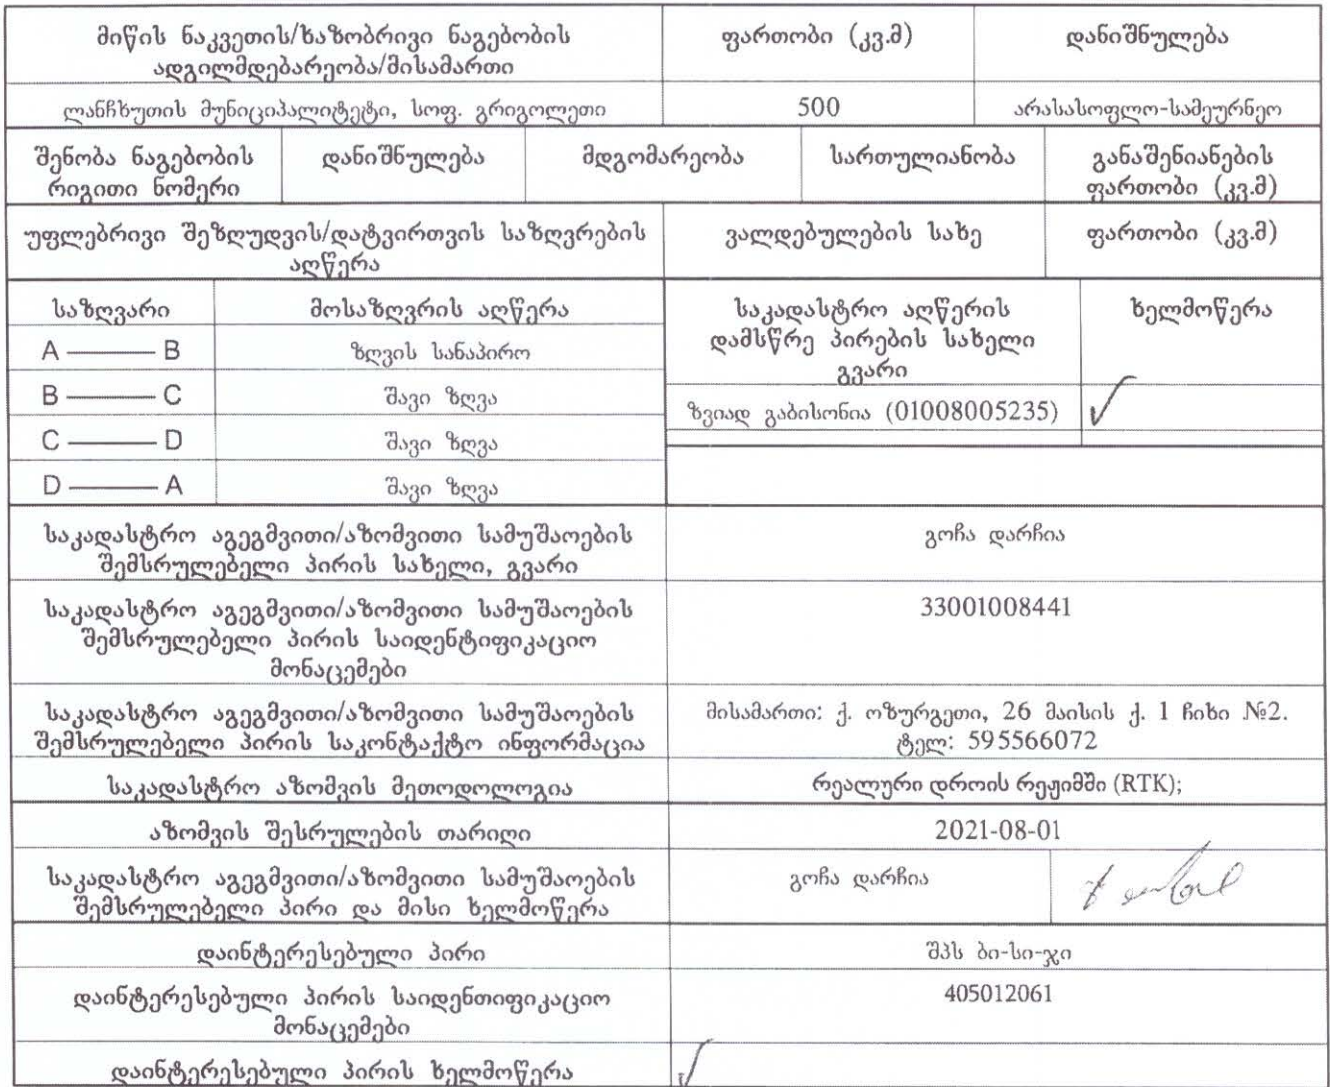 მიწის ნაკვეთის/ხაზობრივი ნაგებობის ადგილმდებარეობა/მისამართი
ფართობი (კვ.მ)
დანიშნულება
ლანჩხუთის მუნიციპალიტეტი, სოფ. გრიგოლეთი
500
არასასოფლო-სამეურნეო
შენობა ნაგებობის
რიგითი ნომერი
დანიშნულება
მდგომარეობა
სართულიანობა
განაშენიანების
ფართობი (კვ.მ)
უფლებრივი შეზღუდვის/დატვირთვის საზღვრების
აღწერა
ვალდებულების სახე
ფართობი (კვ.მ)
საზღვარი
მოსაზღვრის აღწერა
A —— B
ზღვის სანაპირო
B —— C
შავი ზღვა
C —— D
შავი ზღვა
D —— A
შავი ზღვა
საკადასტრო აღწერის
დამსწრე პირების სახელი
გვარი
ხელმოწერა
ზვიად გაბისონია (01008005235)
საკადასტრო აგეგმვითი/აზომვითი სამუშაოების
შემსრულებელი პირის სახელი, გვარი
გოჩა დარჩია
საკადასტრო აგეგმვითი/აზომვითი სამუშაოების
შემსრულებელი პირის საიდენტიფიკაციო
მონაცემები
33001008441
საკადასტრო აგეგმვითი/აზომვითი სამუშაოების
შემსრულებელი პირის საკონტაქტო ინფორმაცია
მისამართი: ქ. ოზურგეთი, 26 მაისის ქ. 1 ჩიხი №2.
ტელ: 595566072
საკადასტრო აზომვის მეთოდოლოგია
რეალური დროის რეჟიმში (RTK);
აზომვის შესრულების თარიღი
2021-08-01
საკადასტრო აგეგმვითი/აზომვითი სამუშაოების
შემსრულებელი პირი და მისი ხელმოწერა
გოჩა დარჩია
დაინტერესებული პირი
შპს ბი-სი-ჯი
დაინტერესებული პირის საიდენთიფიკაციო
მონაცემები
405012061
დაინტერესებული პირის ხელმოწერა